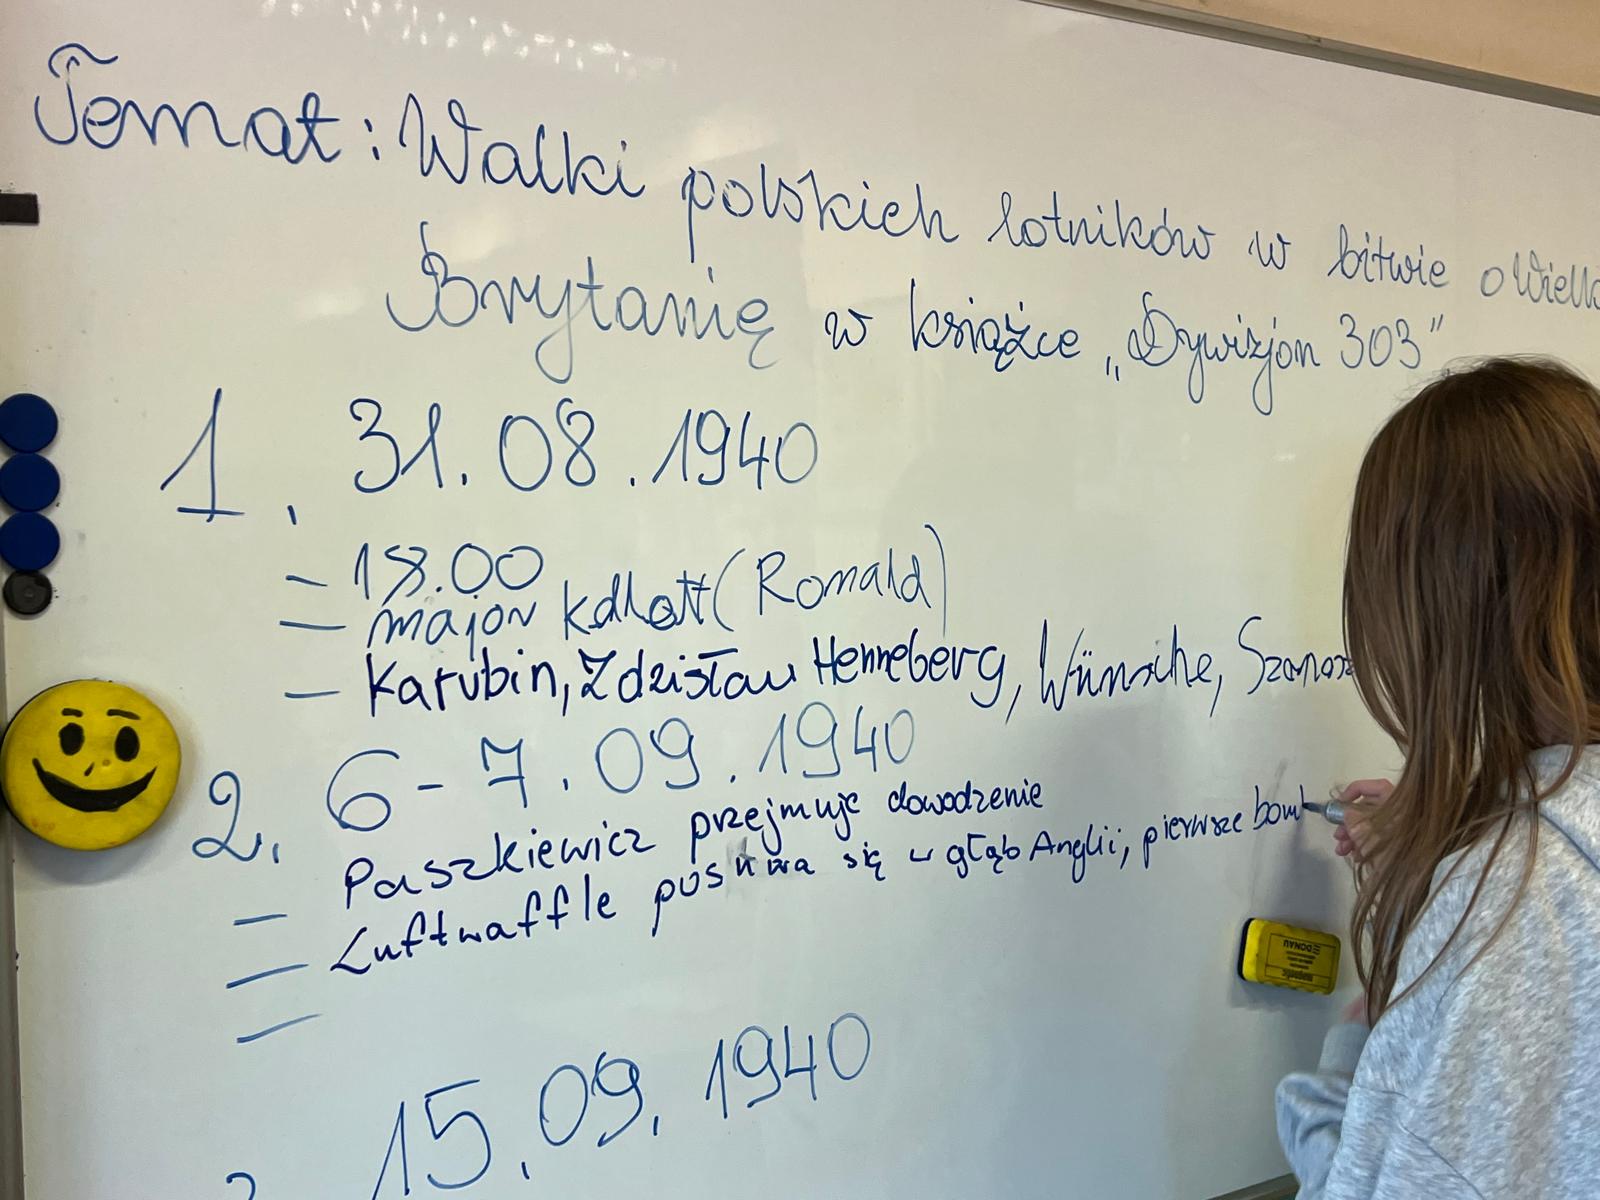 Temat: Walki polskich lotników w bitwie o Wielk
Brytanię w książce „Dywizjon 303"
1. 31.08.1940
- 18.00
- major (Ronald)
- Karubin, Zdzisław Henneberg, Wünsche, Szapos
2. 6-7.09.1940
- Paszkiewicz przejmuje dowodzenie
- Luftwaffle posuwa się w głąb Anglii, pierwsze bomb
-
15.09.1940
DONAU
magnetic